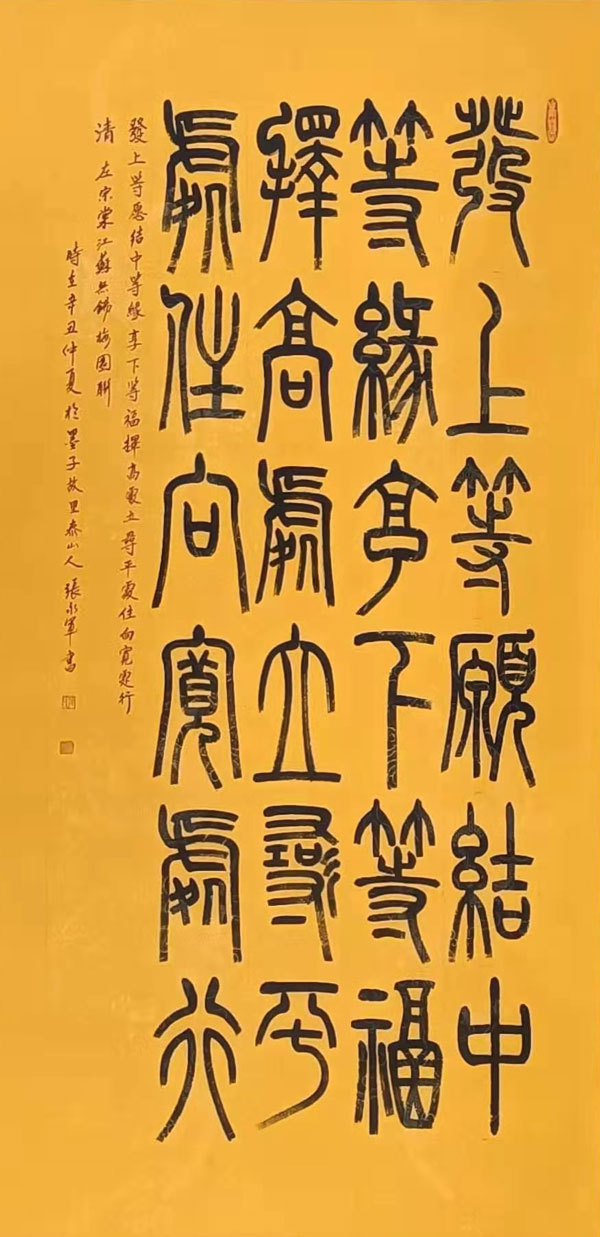 發上等願結中
等緣享下等福
擇高處立尋平
處住向寬處行
發上等愿结中等缘享下等福擇高處立尋平處住向寬處行
清 左宗棠江蘇無錫梅園聯
時在辛丑仲夏於墨子故里泰山人張永軍書